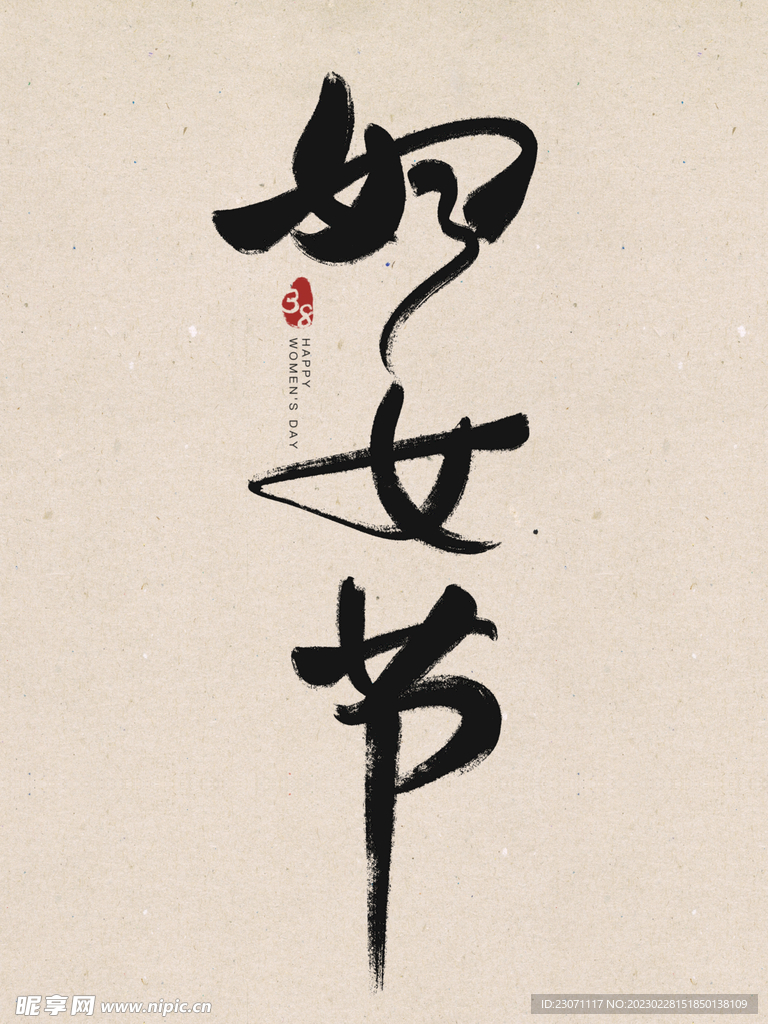 妇女节
38
HAPPY
WOMEN'S DAY
昵享网 www.nipic.cn
ID:23071117 NO:20230228151850138109